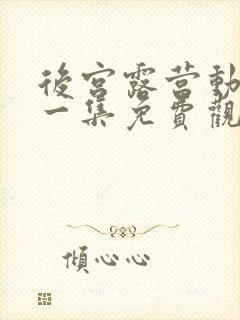 後宮露营動
一集免費觀
傾心心